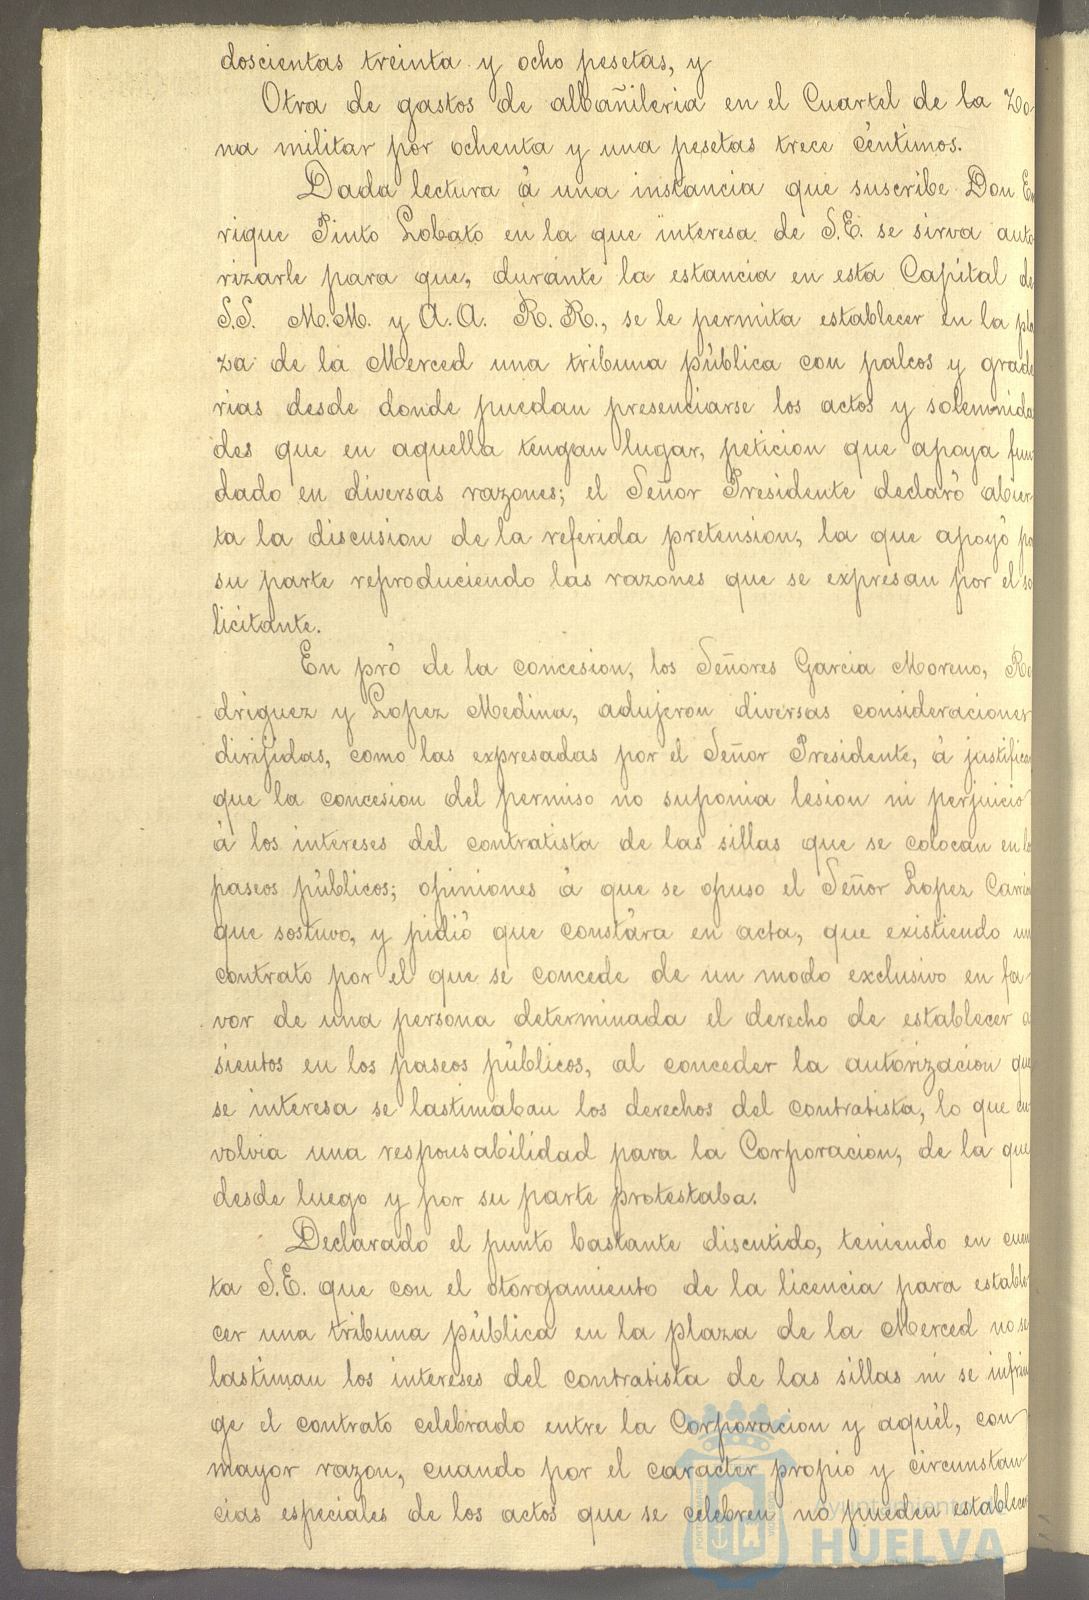 doscientas treinta y ocho pesetas, y
Otra de gastos de albañileria en el Cuartel de la Zo-
na militar por ochenta y una pesetas trece céntimos.
Dada lectura á una instancia que suscribe Don En
rique Pinto Lobato en la que interesa de S.E. se sirva auto
rizarle para que, durante la estancia en esta Capital de
S.S. M.M. y A.A. R.R., se le permita establecer en la pla
za de la Merced una tribuna pública con palcos y grade
rias desde donde puedan presenciarse los actos y solemnida
des que en aquella tengan lugar, peticion que apoya fun
dado en diversas razones; el Señor Presidente declaró abier
ta la discusion de la referida pretension, la que apoyó por
su parte reproduciendo las razones que se expresan por el so
licitante.
En pró de la concesion, los Señores Garcia Moreno, Ro
driguez y Lopez Medina, adujeron diversas consideraciones
dirijidas, como las expresadas por el Señor Presidente, á justificar
que la concesion del permiso no suponia lesion ni perjuicio
á los intereses del contratista de las sillas que se colocan en los
paseos públicos; opiniones á que se opuso el Señor Lopez
que sostuvo, y pidió que constára en acta, que existiendo un
contrato por el que se concede de un modo exclusivo en fa-
vor de una persona determinada el derecho de establecer a
sientos en los paseos públicos, al conceder la autorizacion que
se interesa se lastimaban los derechos del contratista, lo que en
volvia una responsabilidad para la Corporacion, de la que
desde luego y por su parte protestaba.
Declarado el punto bastante discutido, teniendo en cuen
ta S.E. que con el otorgamiento de la licencia para estable
cer una tribuna pública en la plaza de la Merced no se
lastiman los intereses del contratista de las sillas ni se infrin
ge el contrato celebrado entre la Corporacion y aquél, con
mayor razon, cuando por el caracter propio y circunstan
cias especiales de los actos que se celebren no pueden establecer
Ayuntamiento de
HUELVA